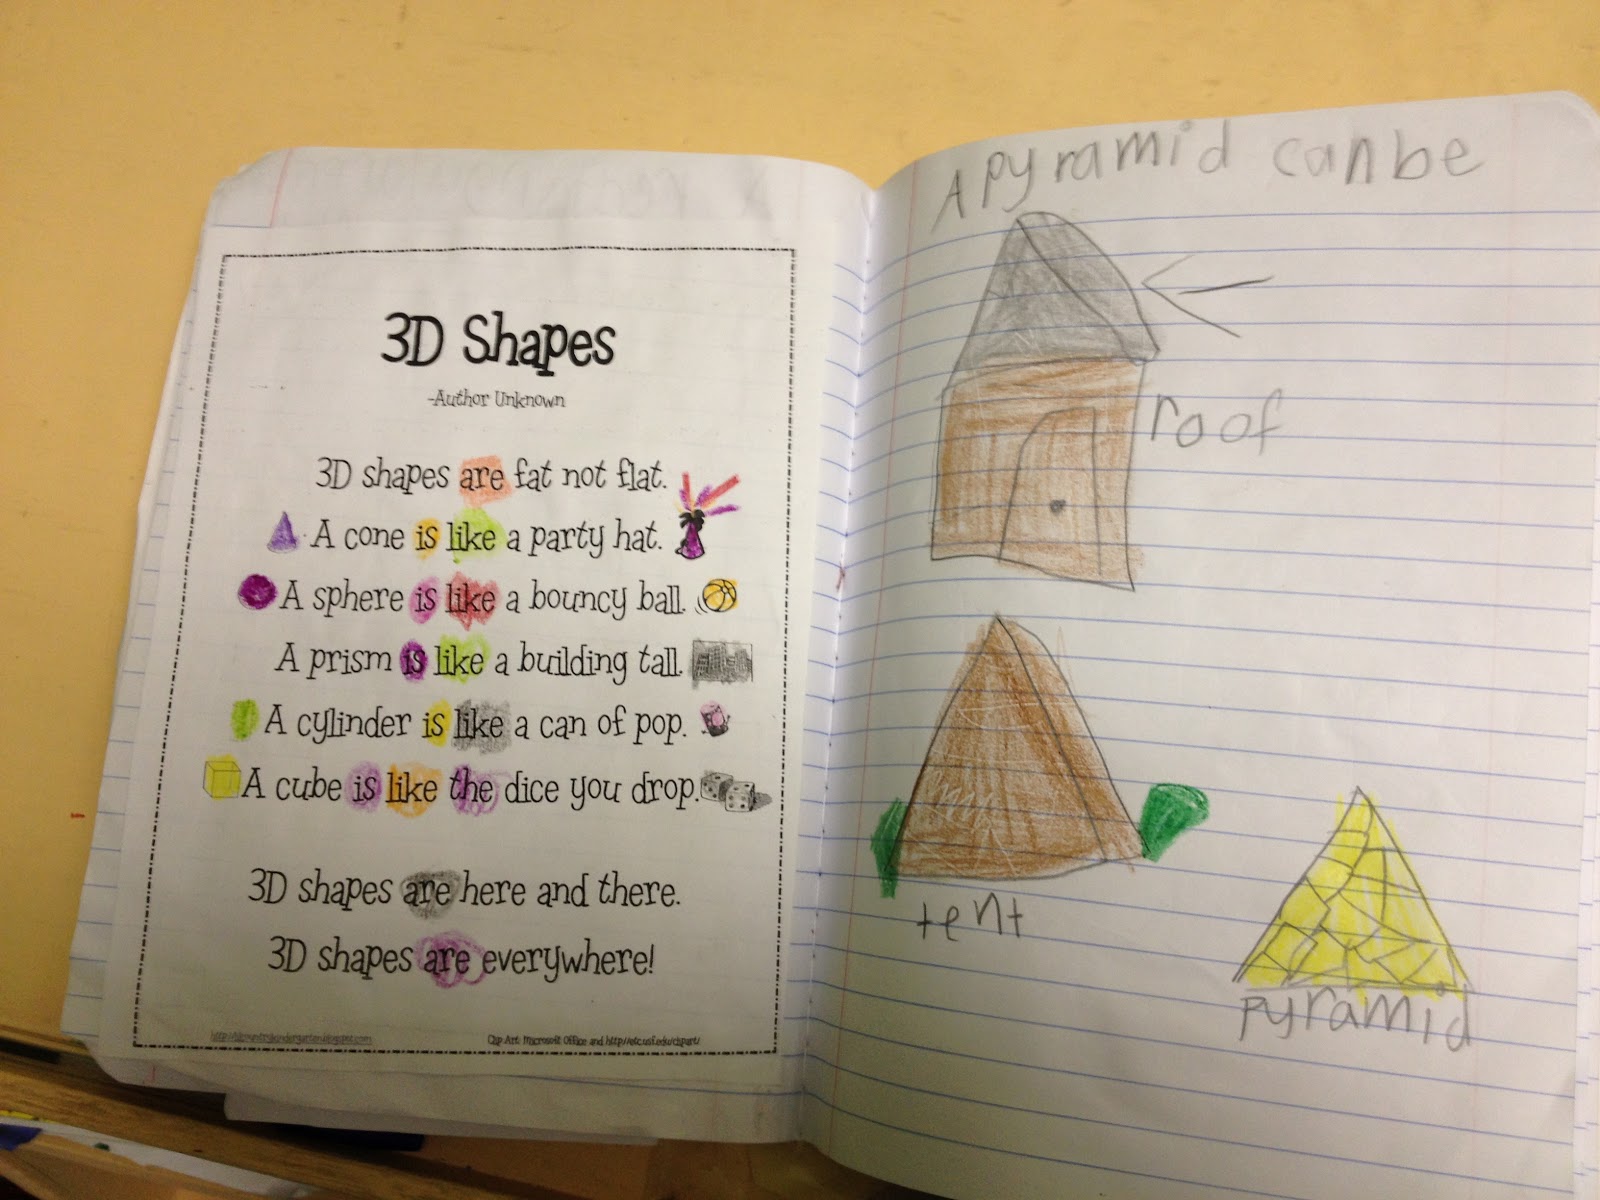 3D Shapes
-Author Unknown
3D shapes are fat not flat.
A cone is like a party hat.
A sphere is like a bouncy ball.
A prism is like a building tall.
A cylinder is like a can of pop.
A cube is like the dice you drop.
3D shapes are here and there.
3D shapes are everywhere!
Clip Art: Microsoft Office and http://etc.usf.edu/clipart/
A pyramid can be
roof
tent
pyramid